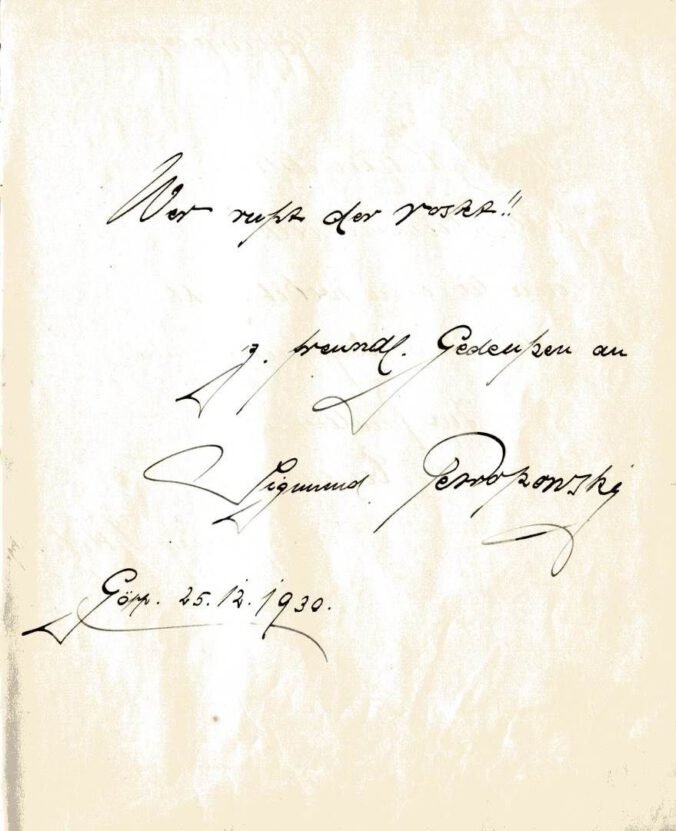 Wer ruht der rostet!!
z. freundl. Gedenken an
Sigmund
Göpp. 25.12.1930.